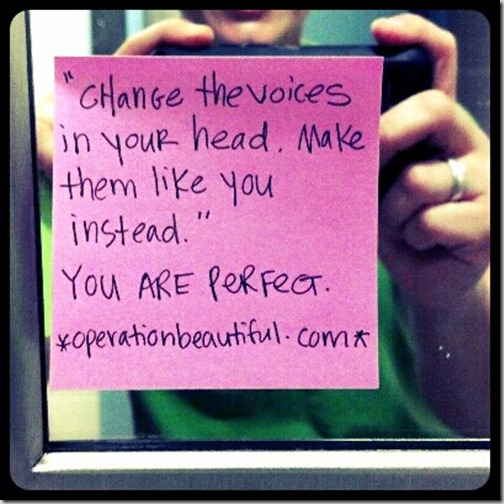 "CHANGE the voices
in your head. Make
them like you
instead."
YOU ARE PERFECT.
*operationbeautiful.com*